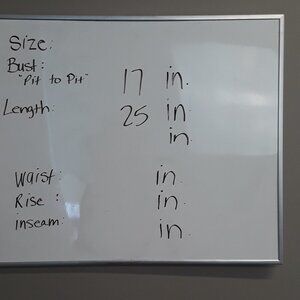 Size:
Bust:
"Pit to Pit" 17 in.
Length: 25 in
in.
Waist: in.
Rise: in.
inseam: in.